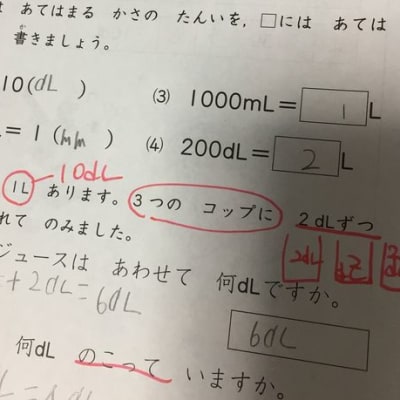 あてはまる かさの たんいを, □には あては
書きましょう。
10(dL)
(3) 1000mL=1L
L=1(mm)
(4) 200dL=2L
10dL
1L あります。3つの コップに 2dLずつ
れて のみました。
2dL 2dL
ジュースは あわせて 何dLですか。
+2dL=6dL
6dL
何dL のこって いますか。